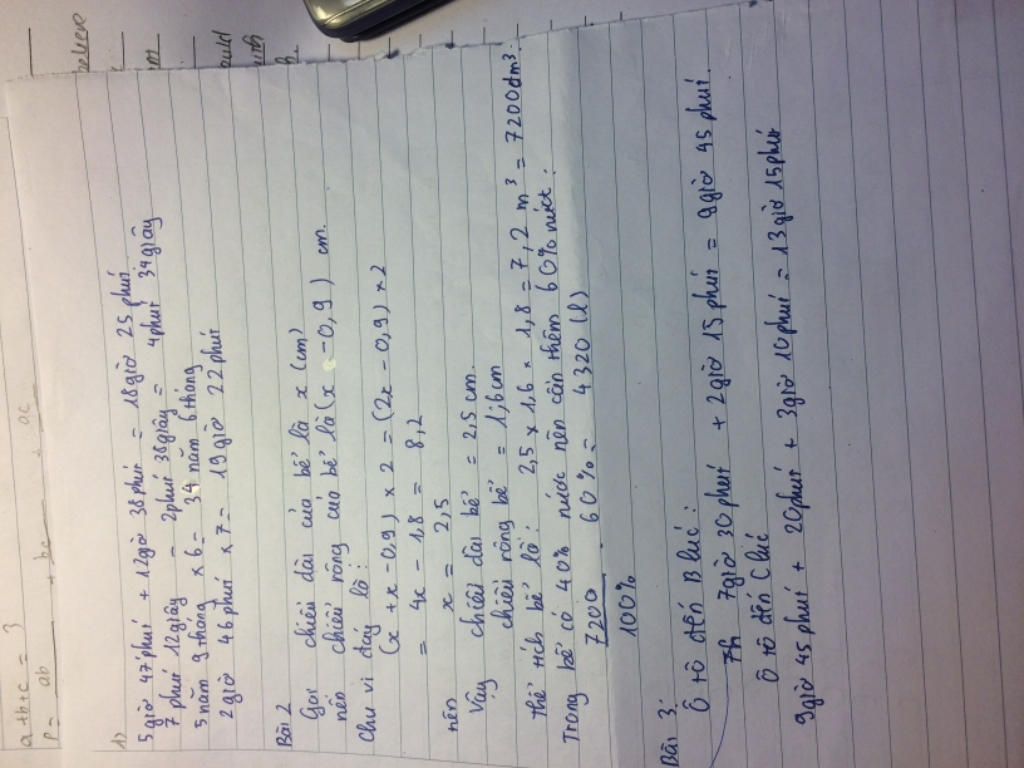 a+b+c = 3
P = ab + bc + ac
1)
5 giờ 47 phút + 12 giờ 38 phút = 18 giờ 25 phút
7 phút 12 giây - 2 phút 38 giây = 4 phút 34 giây
5 năm 9 tháng × 6 = 34 năm 6 tháng
2 giờ 46 phút × 7 = 19 giờ 22 phút
Bài 2
Gọi chiều dài của bể là x (cm)
nên chiều rộng của bể là (x - 0,9) cm.
Chu vi đáy là:
(x + x - 0,9) × 2 = (2x - 0,9) × 2
= 4x - 1,8 = 8,2
nên x = 2,5
Vậy chiều dài bể = 2,5 cm.
chiều rộng bể = 1,6 cm
Thể tích bể là: 2,5 × 1,6 × 1,8 = 7,2 m³ = 7200 dm³.
Trong bể có 40% nước nên cần thêm 60% nước.
7200 60% = 4320 (l)
100%
Bài 3:
Ô tô đến B lúc:
7h 7 giờ 30 phút + 2 giờ 15 phút = 9 giờ 45 phút.
Ô tô đến C lúc
9 giờ 45 phút + 20 phút + 3 giờ 10 phút = 13 giờ 15 phút